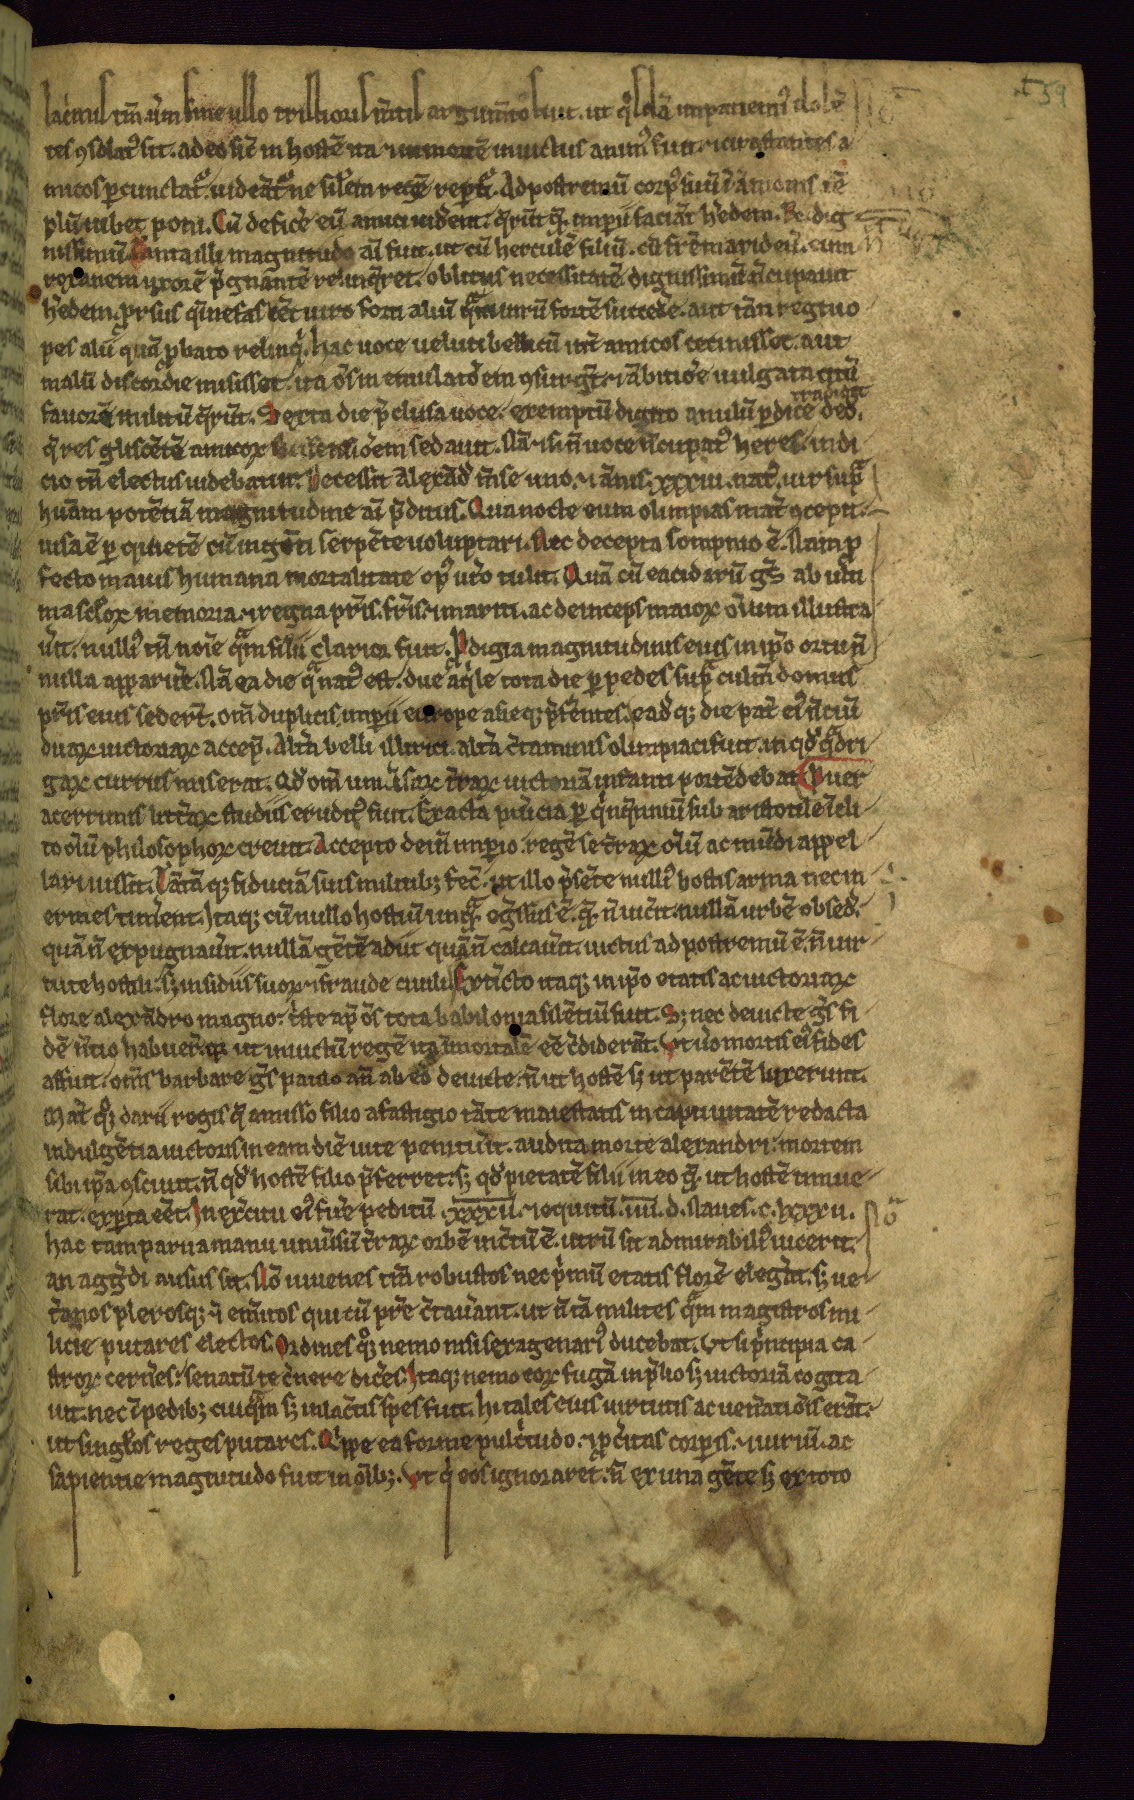 lacrimis tm̄ uerū sine ullo tristioris m̄tis argum̄to fuit. ut qͦsdā impatientiꝰ dolē
tes ↄsolatꝰ sit. adeo sic̄ in hostē ita ⁊ in mortē inuictus animꝰ fuit. ⁊ circūstantes a
micos percunctatꝰ. uideāt᷑ ne silem regē repti. Ad postremū corpꝰ suū ī āmonis tē
plū iubet poni. Cū deficē eū amici uident. q̄rūt qē. imperii faciāt h̄edem. R̄c dig
nissimū. Tanta illi magnitudo ai fuit. ut cū herculē filiū. cū fr̄em arideū. cum
roxanem uxorē p̄gnantē relinq̄ret. oblitus necessitatē dignissimū n̄cupauit
h̄edem. prorsus q̄si nefas eēt uiro forti aliū quā uirū fortē succedē. aut tāti regni o
pes alii quā probato relinq̄. hac uoce ueluti bellicū int̄ amicos cecinisset. aut
malū discordie misisset. ita ōs in emulatiōem ↄsurgūt. ⁊ ābitiōe uulgi tacitū
fauorē militū q̄rūt. Sexta die p̄clusa uoce. exemptū digito anulū perdice tradidit ded.
q̄ res gliscētē amicoꝝ dissensiōem sedauit. Nā ⁊si n̄ uoce n̄cupatꝰ heres. iudi
cio tn̄ electus uidebatur. Decessit Alexād̄ m̄se uno. ⁊ ānis. xxxiii. natꝰ. uir sup̄
hūam potētiā magnitudine ai p̄ditus. Qua nocte eum olimpias mat̄ ↄcepit.
uisa ē per quietē cū ingēti serpēte uoluptari. Nec decepta sompnio ē. Nam p
fecto maius humana mortalitate opꝰ ut̄o tulit. Quā cū eacidarū gēs ab ulti
ma sclōꝝ memoria. ⁊ regna pr̄is. fr̄is. ⁊ mariti. ac deinceps maioꝝ oīum illustra
u̅it. nulliꝰ tn̄ noīe quā filii clarior fuit. Prodigia magnitudinis eius in ip̄o ortu n̄
nulla apparuēr. Nā ea die qua natꝰ est. due aq̄le tota die per pedes sup̄ culm̄ domus
pr̄is eius sedert̄. om̄ duplicis imperii europe asieq; p̄ferentes. eadq; die pat̄ eiꝰ n̄ciū
duaꝝ uictoriaꝝ accep. Alt̄a belli illirici. alt̄a c̄taminis olimpiaci fuit. in qd̄ quadri
gaꝝ currus miserat. Qd̄ om̄ uniūsaꝝ t̄raꝝ uictoriā infanti portēdebat. Puer
acerrimis litt̄aꝝ studiis eruditꝰ fuit. Exacta puericia per q̄nq̄nniū sub aristotile icli
to oīū philosophoꝝ creuit. Accepto dein̄ imperio. regē se t̄raꝝ oīū ac mūdi appel
lari iussit. Tātāq; fiduciā suis militib; fec̄. ut illo p̄sēte nulliꝰ hostis arma nec in
ermes timērent. Itaq; cū nullo hostiū unq̄ ↄgressus ē. quē n̄ uic̄it. nullā urbē obsed̄.
quā n̄ expugnau̅it. nullā gētē adiit quā n̄ calcau̅it. uictus ad postremū ē. n̄ uir
tute hostili. s; insidiis suoꝝ. ⁊ fraude ciuili. Extīcto itaq; in ip̄o etatis ac uictoriaꝝ
flore alexādro magno. t̄ste ap̄ ōs tota babilonia silētiū fuit. S; nec deuicte gēs fi
dē n̄tio habuer̄. quia ut inuictū regē ita īmortalē eē c̄diderāt. Vt uero mortis eiꝰ fides
affuit. om̄s barbare gēs paulo an̄ ab eo deuicte. n̄ ut hostē s; ut parētē luxerunt.
Mat̄ qͦ; darii regis q̄ amisso filio a fastigio tāte maiestatis in captiuitatē redacta
indulgētia uictoris in eam diē uite penituīt. audita morte alexandri. mortem
sibi ip̄a ↄsciuit. n̄ qd̄ hostē filio p̄ferret. s; qd̄ pietatē filii in eo quē. ut hostē timue
rat. exp̄ta eēt. In exc̄itu eiꝰ fuēr peditū .xxxii. ⁊ equitū. iiii. d. Naues. c. lxxxii.
hac tam parua manu uniūsū t̄raꝝ orbē uic̄tū ē. utrū sit admirabiliꝰ uicerit.
an aggredi ausus sit. Nō iuuenes tm̄ robustos nec p̄mū etatis florē elegīt. s; ue
t̄anos plerosq; ⁊ em̄itos qui cū pr̄e c̄tau̅ant. ut n̄ tā milites quā magistros mi
licie putares electos. Ordines qͦ; nemo nisi sexagenariꝰ ducebat. Vt si p̄ncipia ca
stroꝝ cern̄es. senatū te c̄nere dic̄es. Itaq; nemo eoꝝ fugā in p̄lio s; uictoriā cogita
uit. nec ī pedib; cuiquā s; in lac̄tis spes fuit. hi tales eius uirtutis ac uen̄atiōis erāt.
ut singl̄os reges putares. Quippe ea forme pulc̄tudo. ⁊ proc̄itas corporis. ⁊ uiriū. ac
sapientie magnitudo fuit in oīb;. Vt q̄ eos ignoraret. n̄ ex una gēte s; ex toto